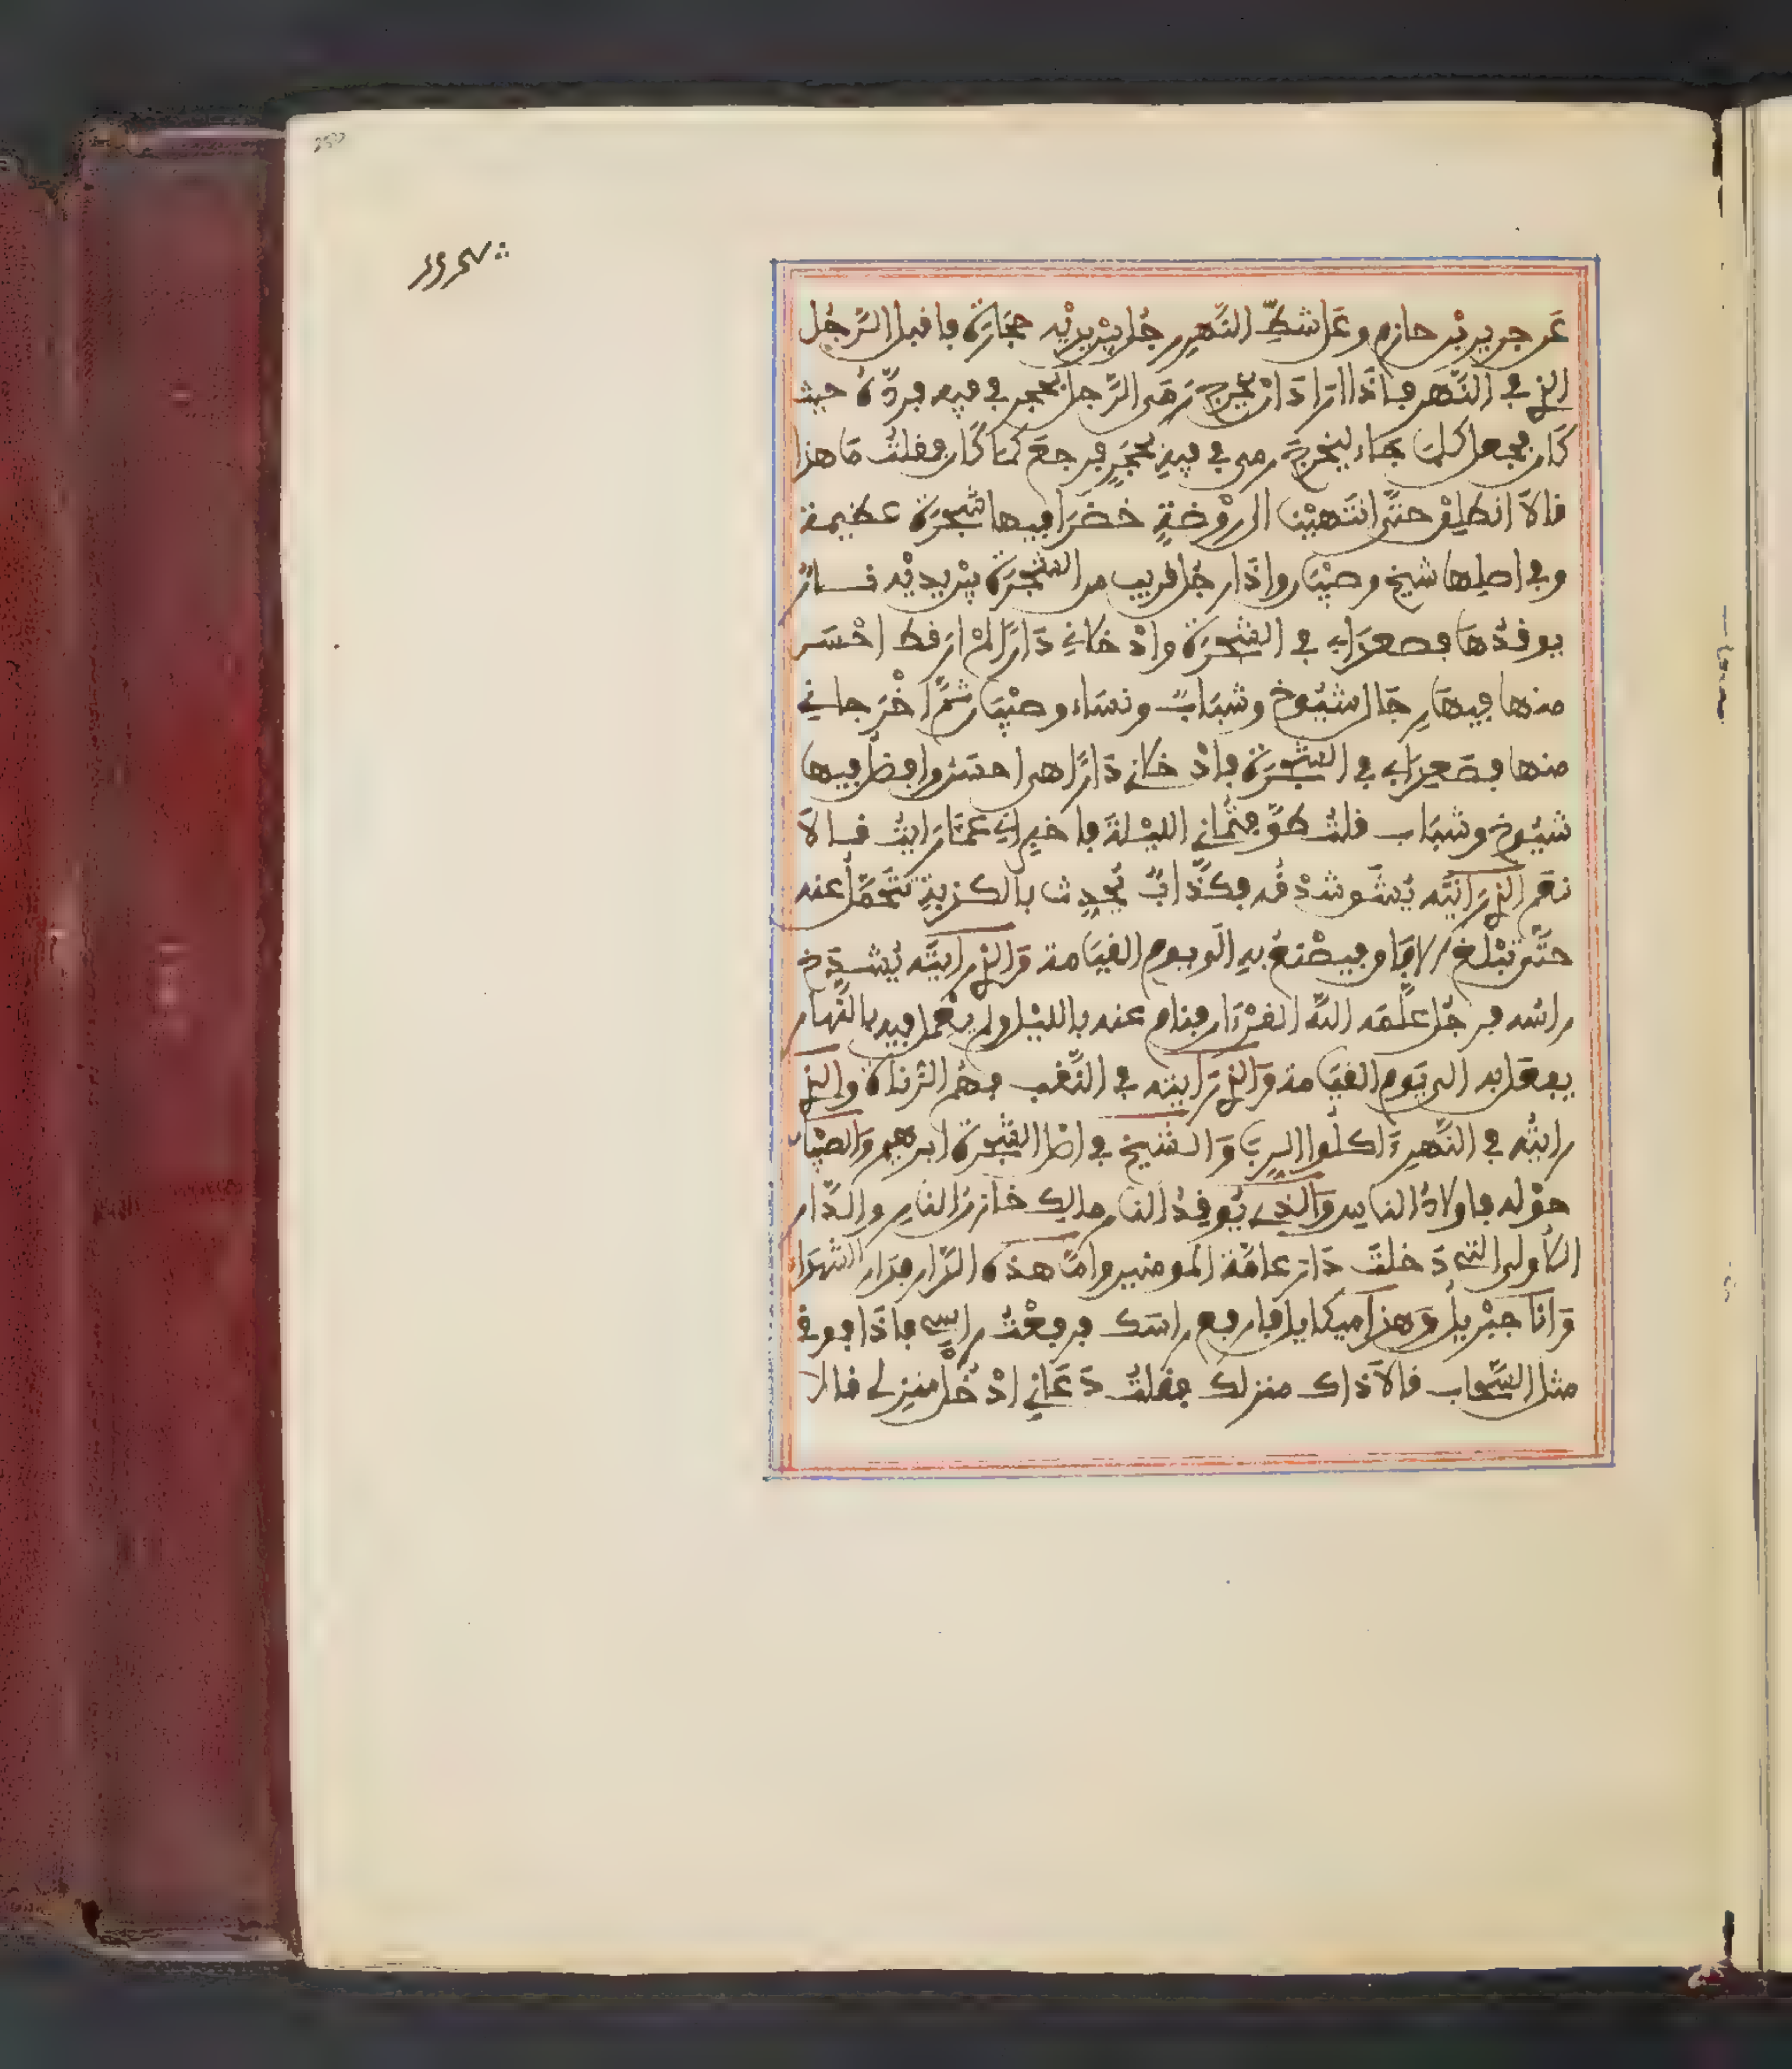 عَن جرير بْن حازم وعَلى شطِّ النَّهر رجُل بيْن يديْه حجَارَة فاقبل الرَّجُل
الذي في النَّهَر فإذَا ارَادَ انْ يخرج رَمَى الرَّجل بحجر في فيه فردَّهُ حيث
كَان فجعل كلمَا جَاء ليَخرج رمى في فيهِ بحجَرٍ فرجعَ كمَا كَان فقلتُ مَا هذا
قالاَ انطلِقْ حتَّى انتَهيْنَا الى رَوْضةٍ خضرَا فيها شجَرَة عظيمة
وفي اصلِها شيخ وصبْيَان واذَا رجُل قريب من الشّجرَة بيْن يديْه نَارٌ
يوقدُهَا فصعدَا بي في الشَّجرَة وادْخلانِي دَارًا لمْ ارَ قط احْسَن
منها فيهَا رِجَال شيُوخ وشبَابٌ ونسَاء وصبْيَان ثمَّ اخْرَجانِي
منها فصَعدَا بي في الشَّجَرَة فادْخلانِي دَارًا هي احسَن وافضل فيها
شيُوخ وشبَاب قلتُ طوَّفتُمَانِي الليْلَةَ فاخبرانِي عمَّا رَايتُ قالاَ
نعَم الذي رَايتَه يُشَق شدْقُه فكذَّابٌ يُحدث بالكذبةِ فتُحْمَلُ عنه
حتَّى تبْلُغ الافَاق فيصْنعُ بهِ الى يوم القيَامة وَالذي رايتَه يُشدَخ
راسُه فرجُل علَّمَه اللَّه القرْءَان فنام عنه بالليْل ولم يعْمل فيه بالنَّهار
يفعَل به الى يَوم القيَامة وَالذي رَايته في الثَّقب فهُم الزُّناة والذي
رايتُه في النَّهر ءَاكلُوا الربَا وَالشيخ في اصْل الشَّجرَة ابرهيم وَالصبْيَان
حوْله فاولادُ الناس وَالذي يُوقدُ النار مالك خازنُ النارِ والدَّار
الأولى التي دَخلتَ دَار عامَّة المومنين وامَّا هذه الدَّار فدَار الشهدَاء
وَانَا جبْريلُ وَهذا ميكايل فارفع راسَك فرفعْتُ راسِي فإذَا فوقي
مثل السَّحاب قالاَ ذاك منزلك فقلتُ دَعَانِي ادْخُلْ منزلي قالا